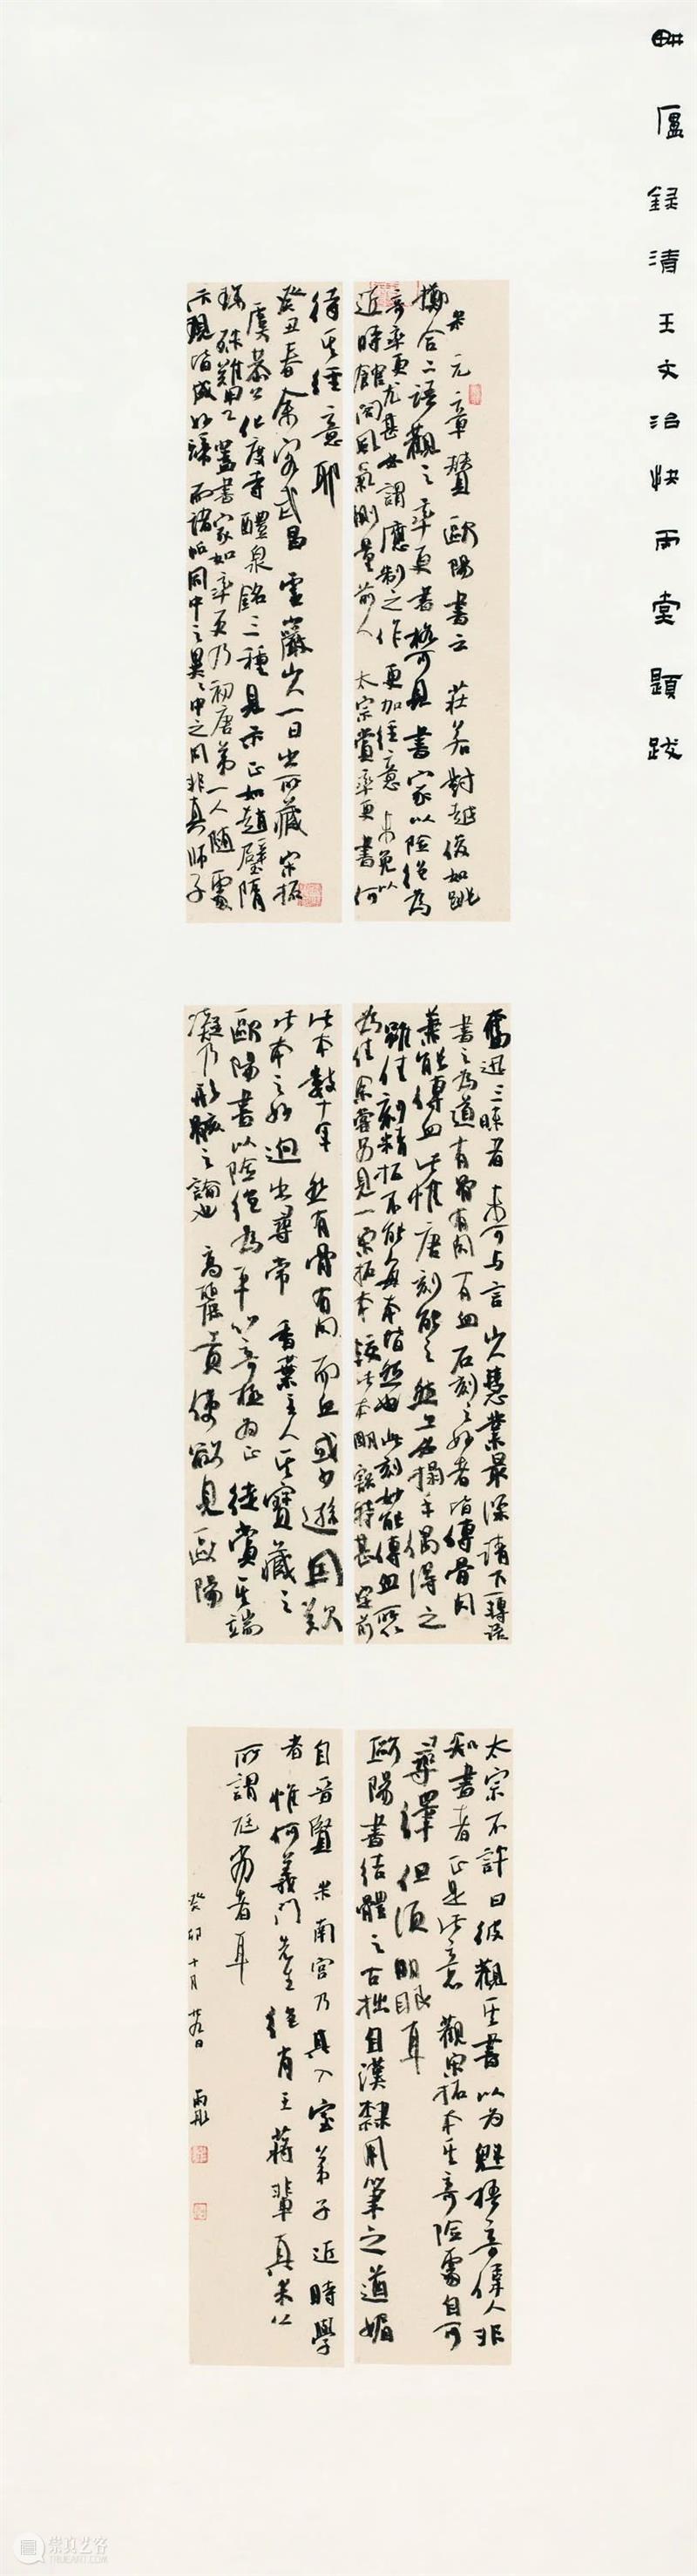 畊廬録清王文治快雨堂題跋
米元章贊歐陽書云莊若對越俊如跳
擲合二語觀之率更書格可見書家以險絕為
奇率更尤甚如謂應制之作更加經意未免以
近時館閣風氣測量前人太宗賞率更書何
待其經意耶
癸丑春余客武昌雲巖山人一日出所藏宋拓
虞恭公化度寺醴泉銘三種見示正如趙璧隋
珠殊難甲乙蓋書家如率更乃初唐第一人隨處
示現皆成妙諦而諸帖同中之異異中之同非真師子
奮迅三昧者未可与言山人慧業最深請下一轉語
書之為道有骨有肉有血石刻之妙者皆傳骨肉
兼能傳血此惟唐刻能之然上石搨手偶得之
雖佳刻精拓不能每本皆然也此刻妙能傳血所以
為佳余嘗另見一宋拓本較此本明豁特甚定前
此本數十年然有骨有肉而血或少遜因歎
此本之妙迥出尋常香葉主人其寶藏之
歐陽書以險絕為平以奇極為正徒賞其端
凝乃形骸之論也高麗貢使欲見歐陽
太宗不許曰彼觀其書以為魁梧奇偉人非
知書者正是此意觀宋拓本其奇險處自可
尋繹但須明眼耳
歐陽書結體之古拙自漢隸用筆之遒媚
自晉賢米南宮乃真入室弟子近時學
者惟何義門先生繼有王蔣輩真米公
所謂庭廡者耳
癸卯十月廿九日
崇真艺客
TRUEART.COM